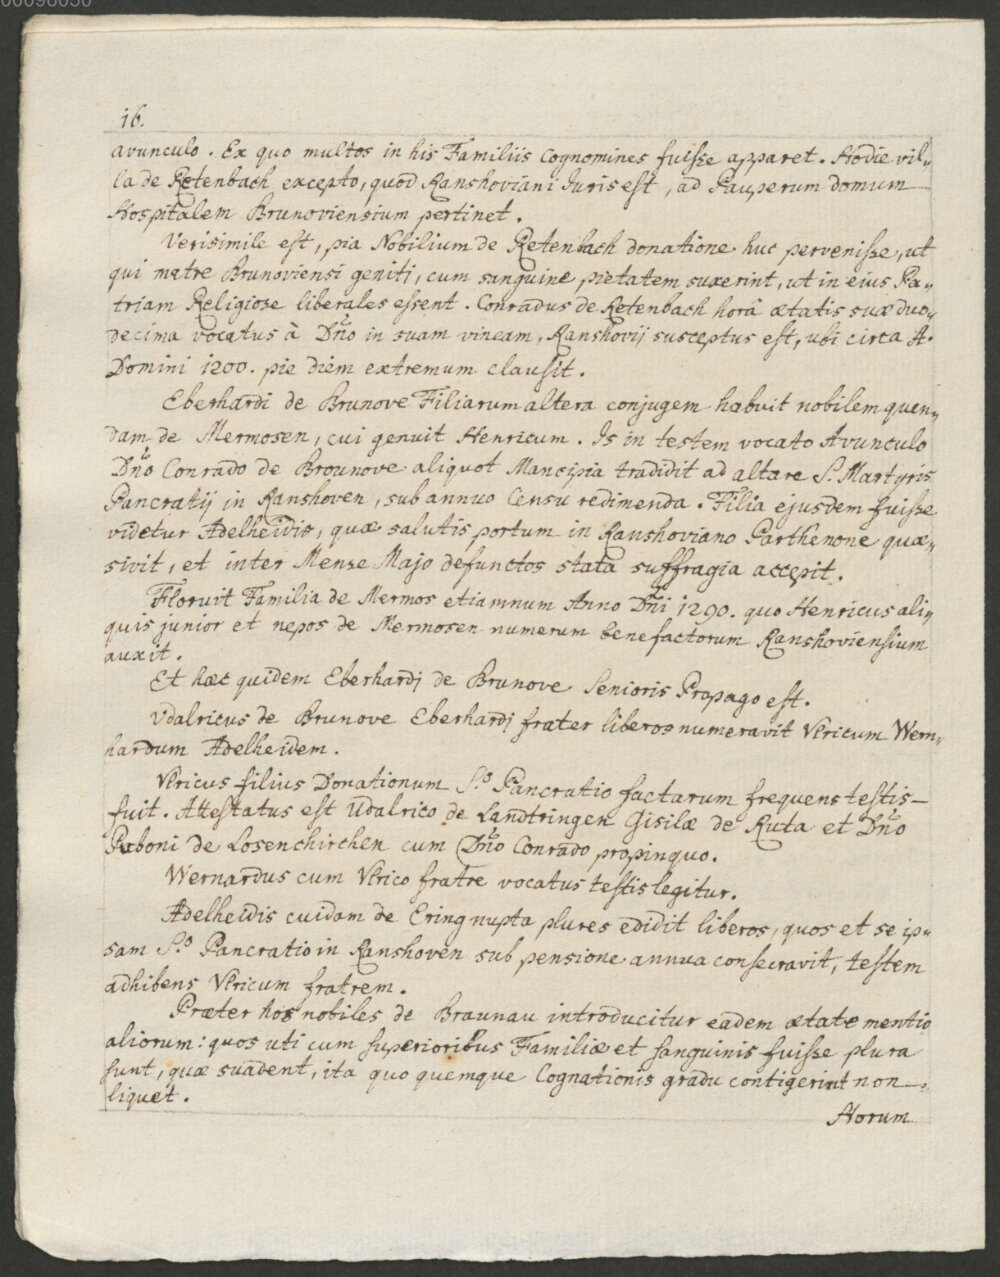 16.
avunculo. Ex quo multos in his Familiis Cognomines fuisse apparet. Hodie vil„
la de Retenbach excepto, quod Ranshoviani Iuris est, ad Pauperum domum
Hospitalem Brunoviensium pertinet.
Verisimile est, pia Nobilium de Retenbach donatione huc pervenisse, ut
qui matre Brunoviensi geniti, cum sanguine pietatem suxerint, ut in eius Pa„
triam Religiose liberales essent. Conradus de Retenbach horâ ætatis suæ duo„
decima vocatus à Dño in suam vineam, Ranshovij susceptus est, ubi circa A.
Domini 1200. pie diem extremum clausit.
Eberhardi de Brunove Filiarum altera conjugem habuit nobilem quen„
dam de Mermosen, cui genuit Henricum. Is in testem vocato Avunculo
Dño Conrado de Brounove aliquot Mancipia tradidit ad altare S. Martyris
Pancratij in Ranshoven, sub annuo Censu redimenda. Filia ejusdem fuisse
videtur Adelheidis, quæ salutis portum in Ranshoviano Parthenone quæ„
sivit, et inter Mense Majo defunctos stata suffragia accepit.
Floruit Familia de Mermos etiamnum Anno Dñi 1290. quo Henricus ali„
quis junior et nepos de Mermosen numerum benefactorum Ranshoviensium
auxit.
Et hæc quidem Eberhardj de Brunove Senioris Propago est.
Vdalricus de Brunove Eberhardj frater liberos numeravit Vlricum Wern„
hardum Adelheidem.
Vlricus filius Donationum S.o Pancratio factarum frequens testis
fuit. Attestatus est Udalrico de Landtringen Gisilæ de Ruta et Dño
Paboni de Losenchirchen cum Dño Conrado propinquo.
Wernardus cum Vlrico fratre vocatus testis legitur.
Adelheidis cuidam de Ering nupta plures edidit liberos, quos et se ip„
sam S.o Pancratio in Ranshoven sub pensione annua consecravit, testem
adhibens Vlricum fratrem.
Præter hos nobiles de Braunau introducitur eadem ætate mentio
aliorum: quos uti cum superioribus Familiæ et sanguinis fuisse plura
sunt, quæ suadent, ita quo quemque Cognationis gradu contigerint non
liquet.
Horum